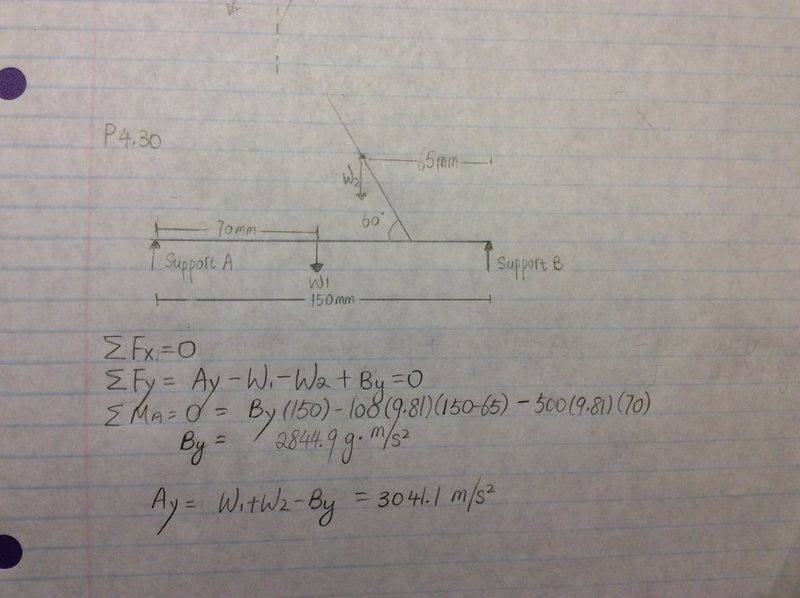 P4.30
65mm
W2
60°
70mm
Support A
W1
Support B
150mm
ΣFx = 0
ΣFy = Ay - W1 - W2 + By = 0
ΣMA = 0 = By (150) - 108 (9.81)(150-65) - 500 (9.81) (70)
By = 2844.9 g· m/s²
Ay = W1+W2 - By = 3041.1 m/s²